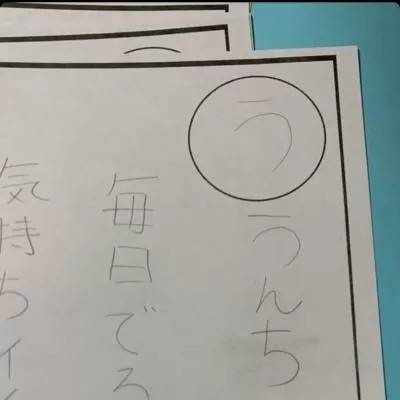 う
うんち
毎日でろ
気持ちイイ